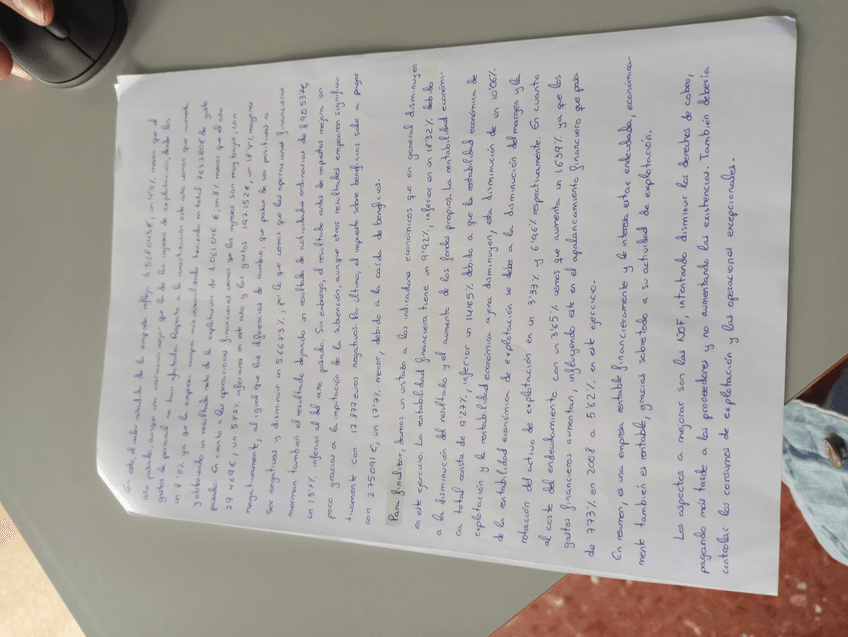 En este, el valor añadido de la empresa refleja 4.528.045€, un 4'5% menos que el
año pasado, aunque una variación mejor que la de los ingresos de explotación, donde los
gastos de personal no han afectado. Respecto a la amortización este año vemos que aumenta
un 8'15% ya que la empresa compra más inmovilizado teniendo en total 767.280€ de gasto
y obteniendo un resultado neto de la explotación de 1.061.046 €, un 8% menos que el año
pasado. En cuanto a las operaciones financieras vemos que los ingresos son muy bajos, con
29.469€, un 57'7% inferiores en este año y los gastos 197.152€, un 18'4% mayores
negativamente, al igual que las diferencias de cambio, que pasan de ser positivas a
ser negativas y disminuir un 566'73%, por lo que vemos que las operaciones financieras
merman también el resultado dejando un resultado de actividades ordinarias de 890.537€,
un 15'7% inferior al del año pasado. Sin embargo, el resultado antes de impuestos mejora un
poco gracias a la imputación de la subvención, aunque otros resultados empeoren significa-
tivamente con 17.877 euros negativos. Por último, el impuesto sobre beneficios sale a pagar
con 275.091€, un 17'17% menor, debido a la caída de beneficios.
Para finalizar, damos un vistazo a los indicadores económicos que en general disminuyen
en este ejercicio. La rentabilidad financiera tiene un 9'92%, inferior en un 18'32% debido
a la disminución del resultado y el aumento de los fondos propios. La rentabilidad económi-
ca total consta de 9'27%, inferior un 14'45% debido a que la rentabilidad económica de
explotación y la rentabilidad económica ajena disminuyen, esta disminución de un 10'06%
de la rentabilidad económica de explotación se debe a la disminución del margen y la
rotación del activo de explotación en un 3'33% y 6'96% respectivamente. En cuanto
al coste del endeudamiento con un 3'65% vemos que aumenta un 16'39% ya que los
gastos financieros aumentan, influyendo esto en el apalancamiento financiero que pasa
de 7'73% en 2008 a 5'62% en este ejercicio.
En resumen, es una empresa rentable financieramente y le interesa estar endeudada, económica-
mente también es rentable, gracias sobretodo a su actividad de explotación.
Los aspectos a mejorar son las NOF, intentando disminuir los derechos de cobro,
pagando más tarde a los proveedores y no aumentando las existencias. También debería
controlar los consumos de explotación y las operaciones excepcionales.